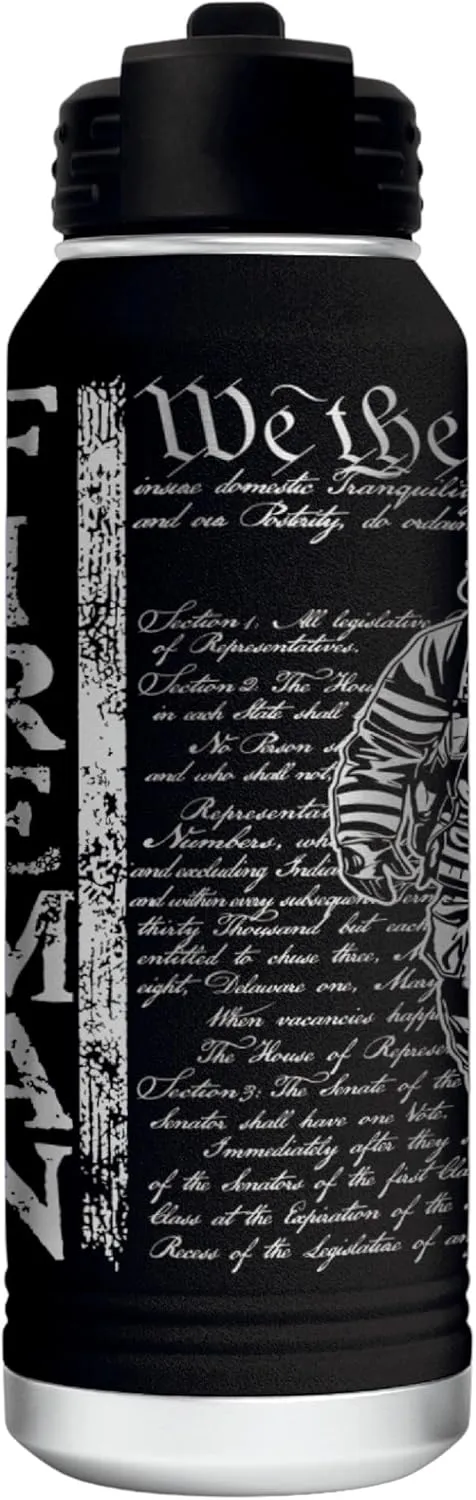 FIREMAN
We the
insure domestic Tranquility
and our Posterity, do ordain
Section 1. All legislative
of Representatives.
Section 2. The Hou
in each State shall
No Person s
and who shall not,
Representat
Numbers, wh
and excluding India
and within every subsequent erm
thirty Thousand but each
entitled to chuse three, M
eight, Delaware one, Mary
When vacancies happ
The House of Represe
Section 3. The Senate of the
Senator shall have one Vote.
Immediately after they
of the Senators of the first Cla
Class at the Expiration of the
Recess of the Legislature of an